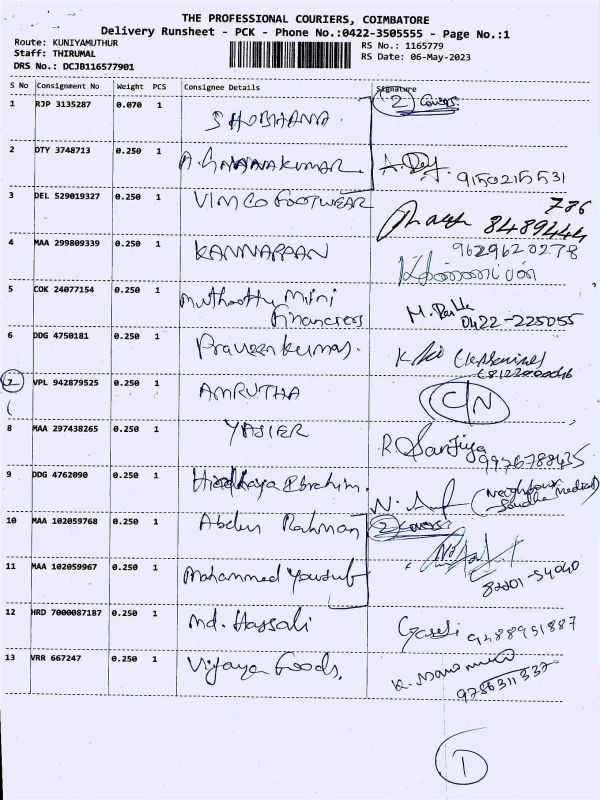 THE PROFESSIONAL COURIERS, COIMBATORE
Delivery Runsheet - PCK - Phone No.:0422-3505555 - Page No.:1
Route: KUNIYAMUTHUR
RS No.: 1165779
Staff: THIRUMAL
RS Date: 06-May-2023
DRS No.: DCJB116577901
S No Consignment No Weight PCS Consignee Details Signature
1 RJP 3135287 0.070 1 SHOBHANA. 2 Covers
2 DTY 3748713 0.250 1 A. GNANAKUMAR 9150215531
3 DEL 529019327 0.250 1 VIMCO FOOTWEAR 786
8489444
4 MAA 299809339 0.250 1 KANNAPPAN 9629620278
5 COK 24077154 0.250 1 Muthoottu Mini
Financiers M. 0422-225055
6 DDG 4750181 0.250 1 Praveen kumar.
7 VPL 942879525 0.250 1 AMRUTHA C/N
8 MAA 297438265 0.250 1 YASIER R Sanjiya
9976788435
9 DDG 4762090 0.250 1 Ebrahim. (Neighbour
Medical)
10 MAA 102059768 0.250 1 Abdur Rahman 2 Covers
11 MAA 102059967 0.250 1 Mohammed Yousuf
82201-54040
12 HRD 7000087187 0.250 1 Md. Hassali 9488951887
13 VRR 667247 0.250 1 Vijaya Foods. K.
9786311332
1